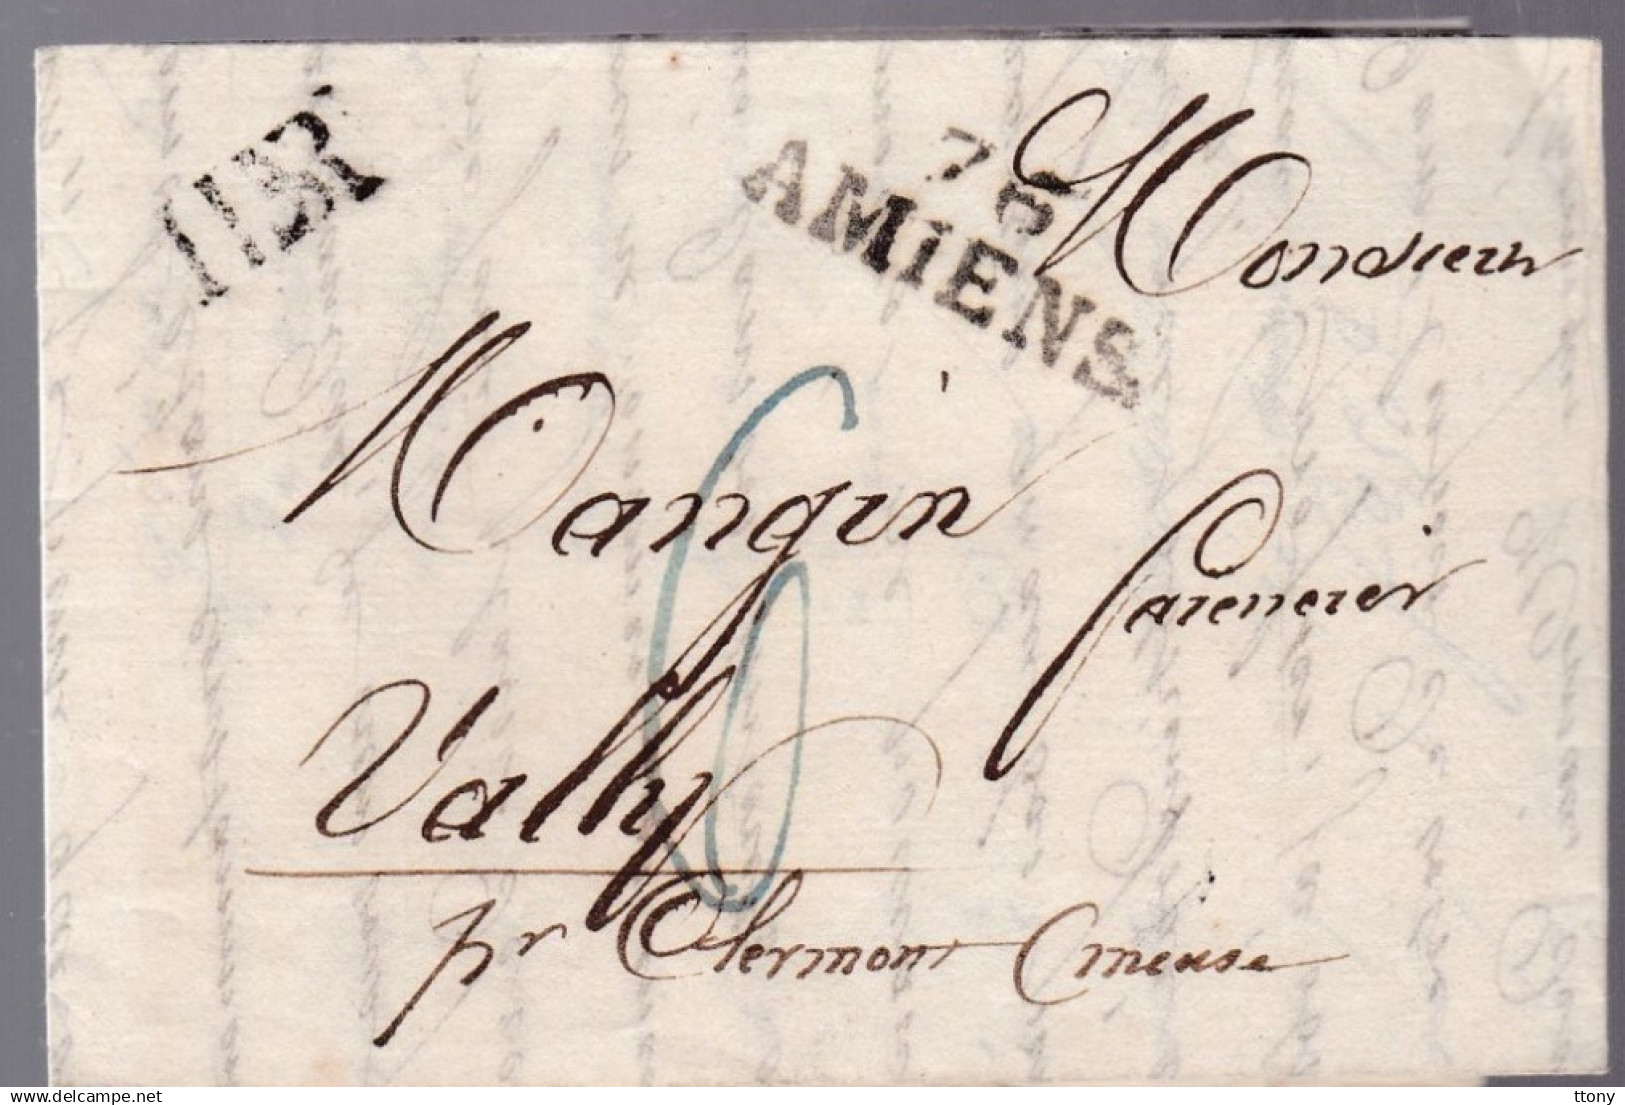 76
AMiENS
Monsieur
Mangin
Vally
pr Clermont (meuse
6
© delcampe.net
ttony